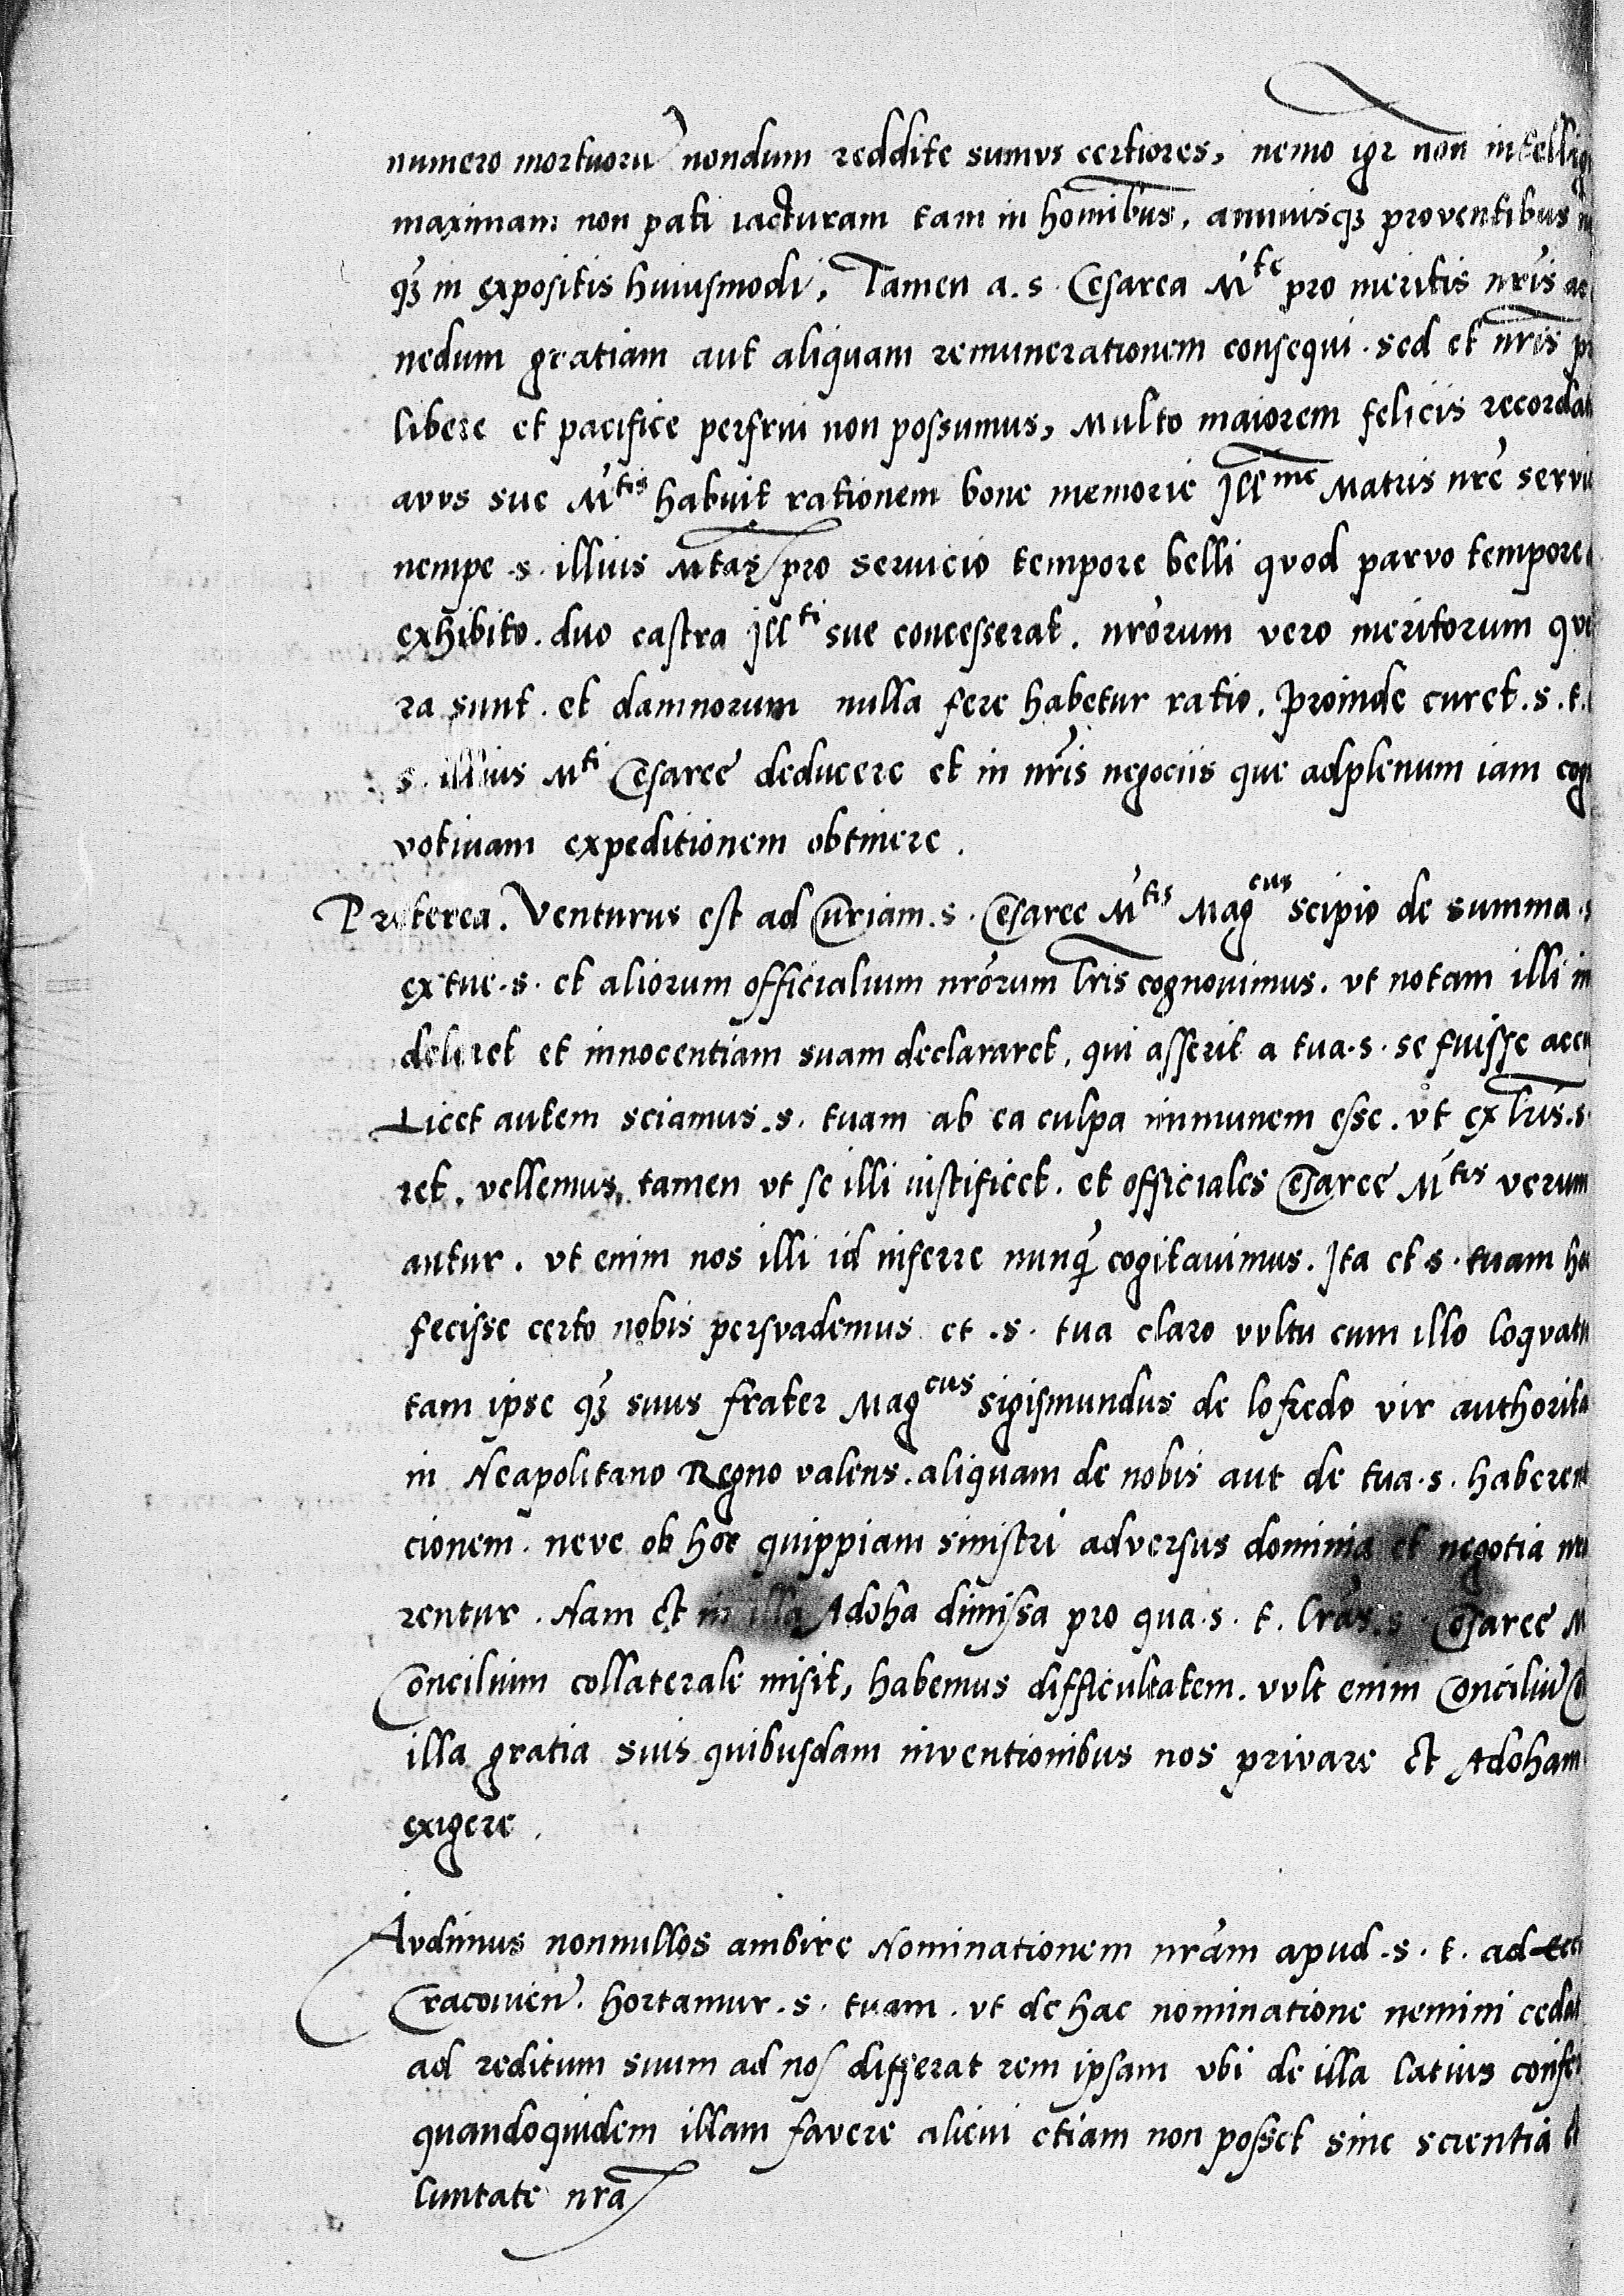 numero mortuorū nondum reddite sumus certiores, nemo igr non intellig
maximam non pati iacturam tam in homībus, annuisq3 proventibus
q3 in expositis huiusmodi, Tamen a. s. Cesarea Mte pro meritis nr̄is
nedum gratiam aut aliquam remunerationem consequi. sed et nr̄is
libere et pacifice perfrui non possumus, Multo maiorem felicis recorda
avus sue Mtis habuit rationem bone memorie Illme Matris nr̄e servi
nempe .s. illius Mtas pro servicio tempore belli quod parvo tempore
exhibito. duo castra Illti sue concesserat. nr̄orum vero meritorum
ra sunt. et damnorum nulla fere habetur ratio. Proinde curet .s. t.
s. illius Mti Cesaree deducere et in nr̄is negociis que adplenum iam cog
votivam expeditionem obtinere.
Preterea. Venturus est ad Curiam .s. Cesaree Mtis Magcus scipio de summa
ex tue .s. et aliorum officialium nr̄orum lr̄is cognovimus. ut notam illi
deleret et innocentiam suam declararet, qui asserit a tua .s. se fuisse accu
Licet autem sciamus .s. tuam ab ea culpa immunem esse. ut ex lr̄is .s.
ret. vellemus, tamen ut se illi iustificet. et officiales Cesaree Mtis verum
antur. ut enim nos illi id inferre nunq̄ cogitavimus. Ita et .s. tuam
fecisse certo nobis persuademus et .s. tua claro vultu cum illo loquat
tam ipse q3 suus frater Magcus sigismundus de lofredo vir authorita
in Neapolitano Regno valens. aliquam de nobis aut de tua .s. haberen
cionem. neve ob hoc quippiam sinistri adversus dominia et negotia
rentur. Nam et in illa Adoha dimissa pro qua .s. t. lr̄as .s. Cesaree
Concilium collaterale misit, habemus difficultatem. vult enim Conciliū
illa gratia suis quibusdam inventionibus nos privare et Adoham
exigere.
Audimus nonnullos ambire Nominationem nr̄am apud .s. t. ad
Cracovien̄. hortamur .s. tuam. ut de hac nominatione nemini ceda
ad reditum suum ad nos differat rem ipsam ubi de illa latius
quandoquidem illam favere alicui etiam non posset sine scientia
luntate nr̄a